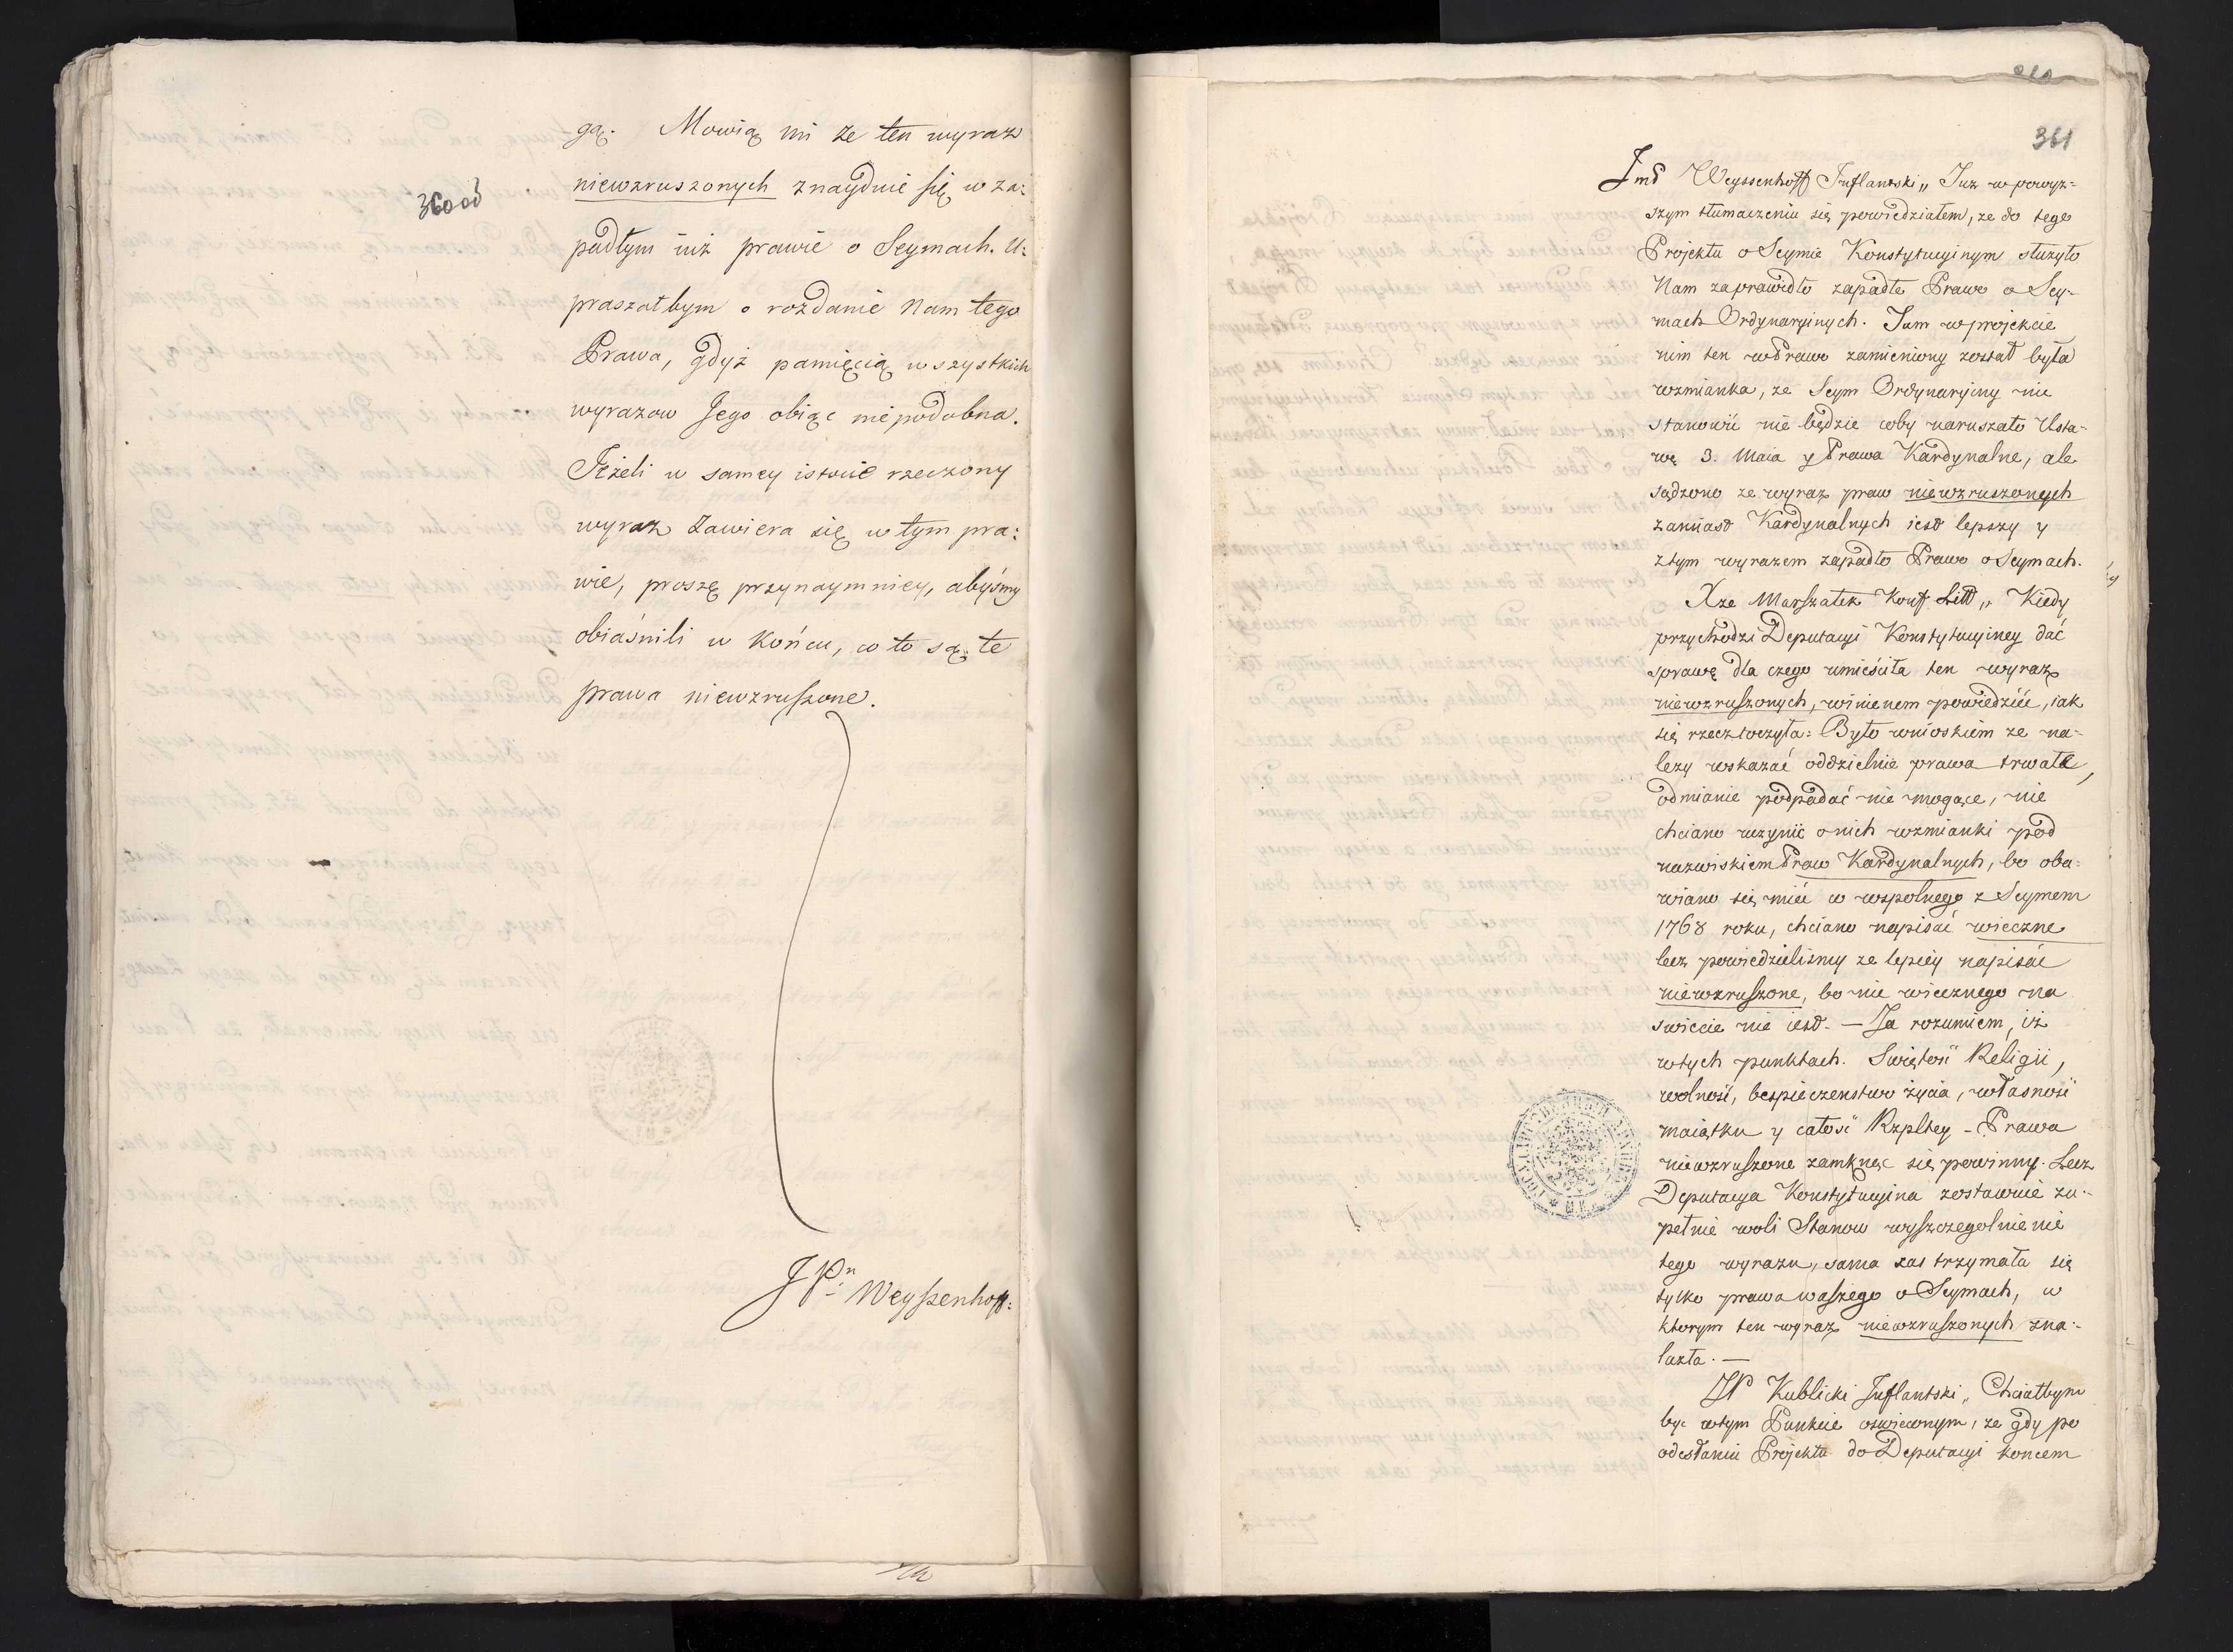 360 od
gą. Mowią mi ze ten wyraz
niewzruszonych znayduie się w za:
padłym iuż prawie o Seymach. U:
praszałbym o rozdanie Nam tego
Prawa, gdyż pamięcią wszystkich
wyrazow Jego obiąc niepodobna.
Jeżeli w samey istocie rzeczony
wyraz zawiera się w tym pra:
wie, proszę przynaymniey, abyśmy
obiaśnili w końcu, co to są te
prawa niewzruszone.
JPn Weyssenhoff:
361
Jmd Weyssenhoff Inflantski „ Juz w powyz-
szym tłumaczeniu się powiedziałem, ze do tego
Projektu o Seymie Konstytucyinym służyło
Nam zaprawidło zapadłe Prawo o Sey-
mach Ordynaryinych. Jam w projekcie
nim ten w Prawo zamieniony został była
wzmianka, ze Seym Ordynaryiny nie
stanowić nie będzie coby naruszało Usta-
wę 3. Maia y Prawa Kardynalne, ale
sądzono ze wyraz praw niewzruszonych
zamiast Kardynalnych iest lepszy y
z tym wyrazem zapadło Prawo o Seymach.
Xze Marszałek Konf Litt „ Kiedy
przychodzi Deputacyi Konstytucyiney dać
sprawę dla czego umieściła ten wyraz
niewzruszonych, winienem powiedzieć, iak
się rzecz toczyła: Było wnioskiem ze na-
lezy wskazać oddzielnie prawa trwałe,
odmianie podpadać nie mogące, nie
chciano uczynić o nich wzmianki pod
nazwiskiem Praw Kardynalnych, bo oba-
wiano się mieć co wspolnego z Seymem
1768 roku, chciano napisać wieczne
lecz powiedzieliśmy ze lepiéy napisać
niewzruszone, bo nic wiecznego na
swiecie nie iest. — Ja rozumiem, iż
w tych punktach. Swiętość Religii,
wolność, bespieczenstwo życia, własność
maiątku y całość Rzpltey - Prawa
niewzruszone zamknąc się powinny. Lecz
Deputacya Konstytucyina zostawuie zu-
pełnie woli Stanow wyszczegolnienie
tego wyrazu, sama zas trzymała się
tylko prawa waszego o Seymach, w
ktorym ten wyraz niewzruszonych zna-
lazła. —
JP Kublicki Inflantski „ Chciałbym
być w tym Punkcie oswieconym, ze gdy po
odesłaniu Projektu do Deputacyi koncem